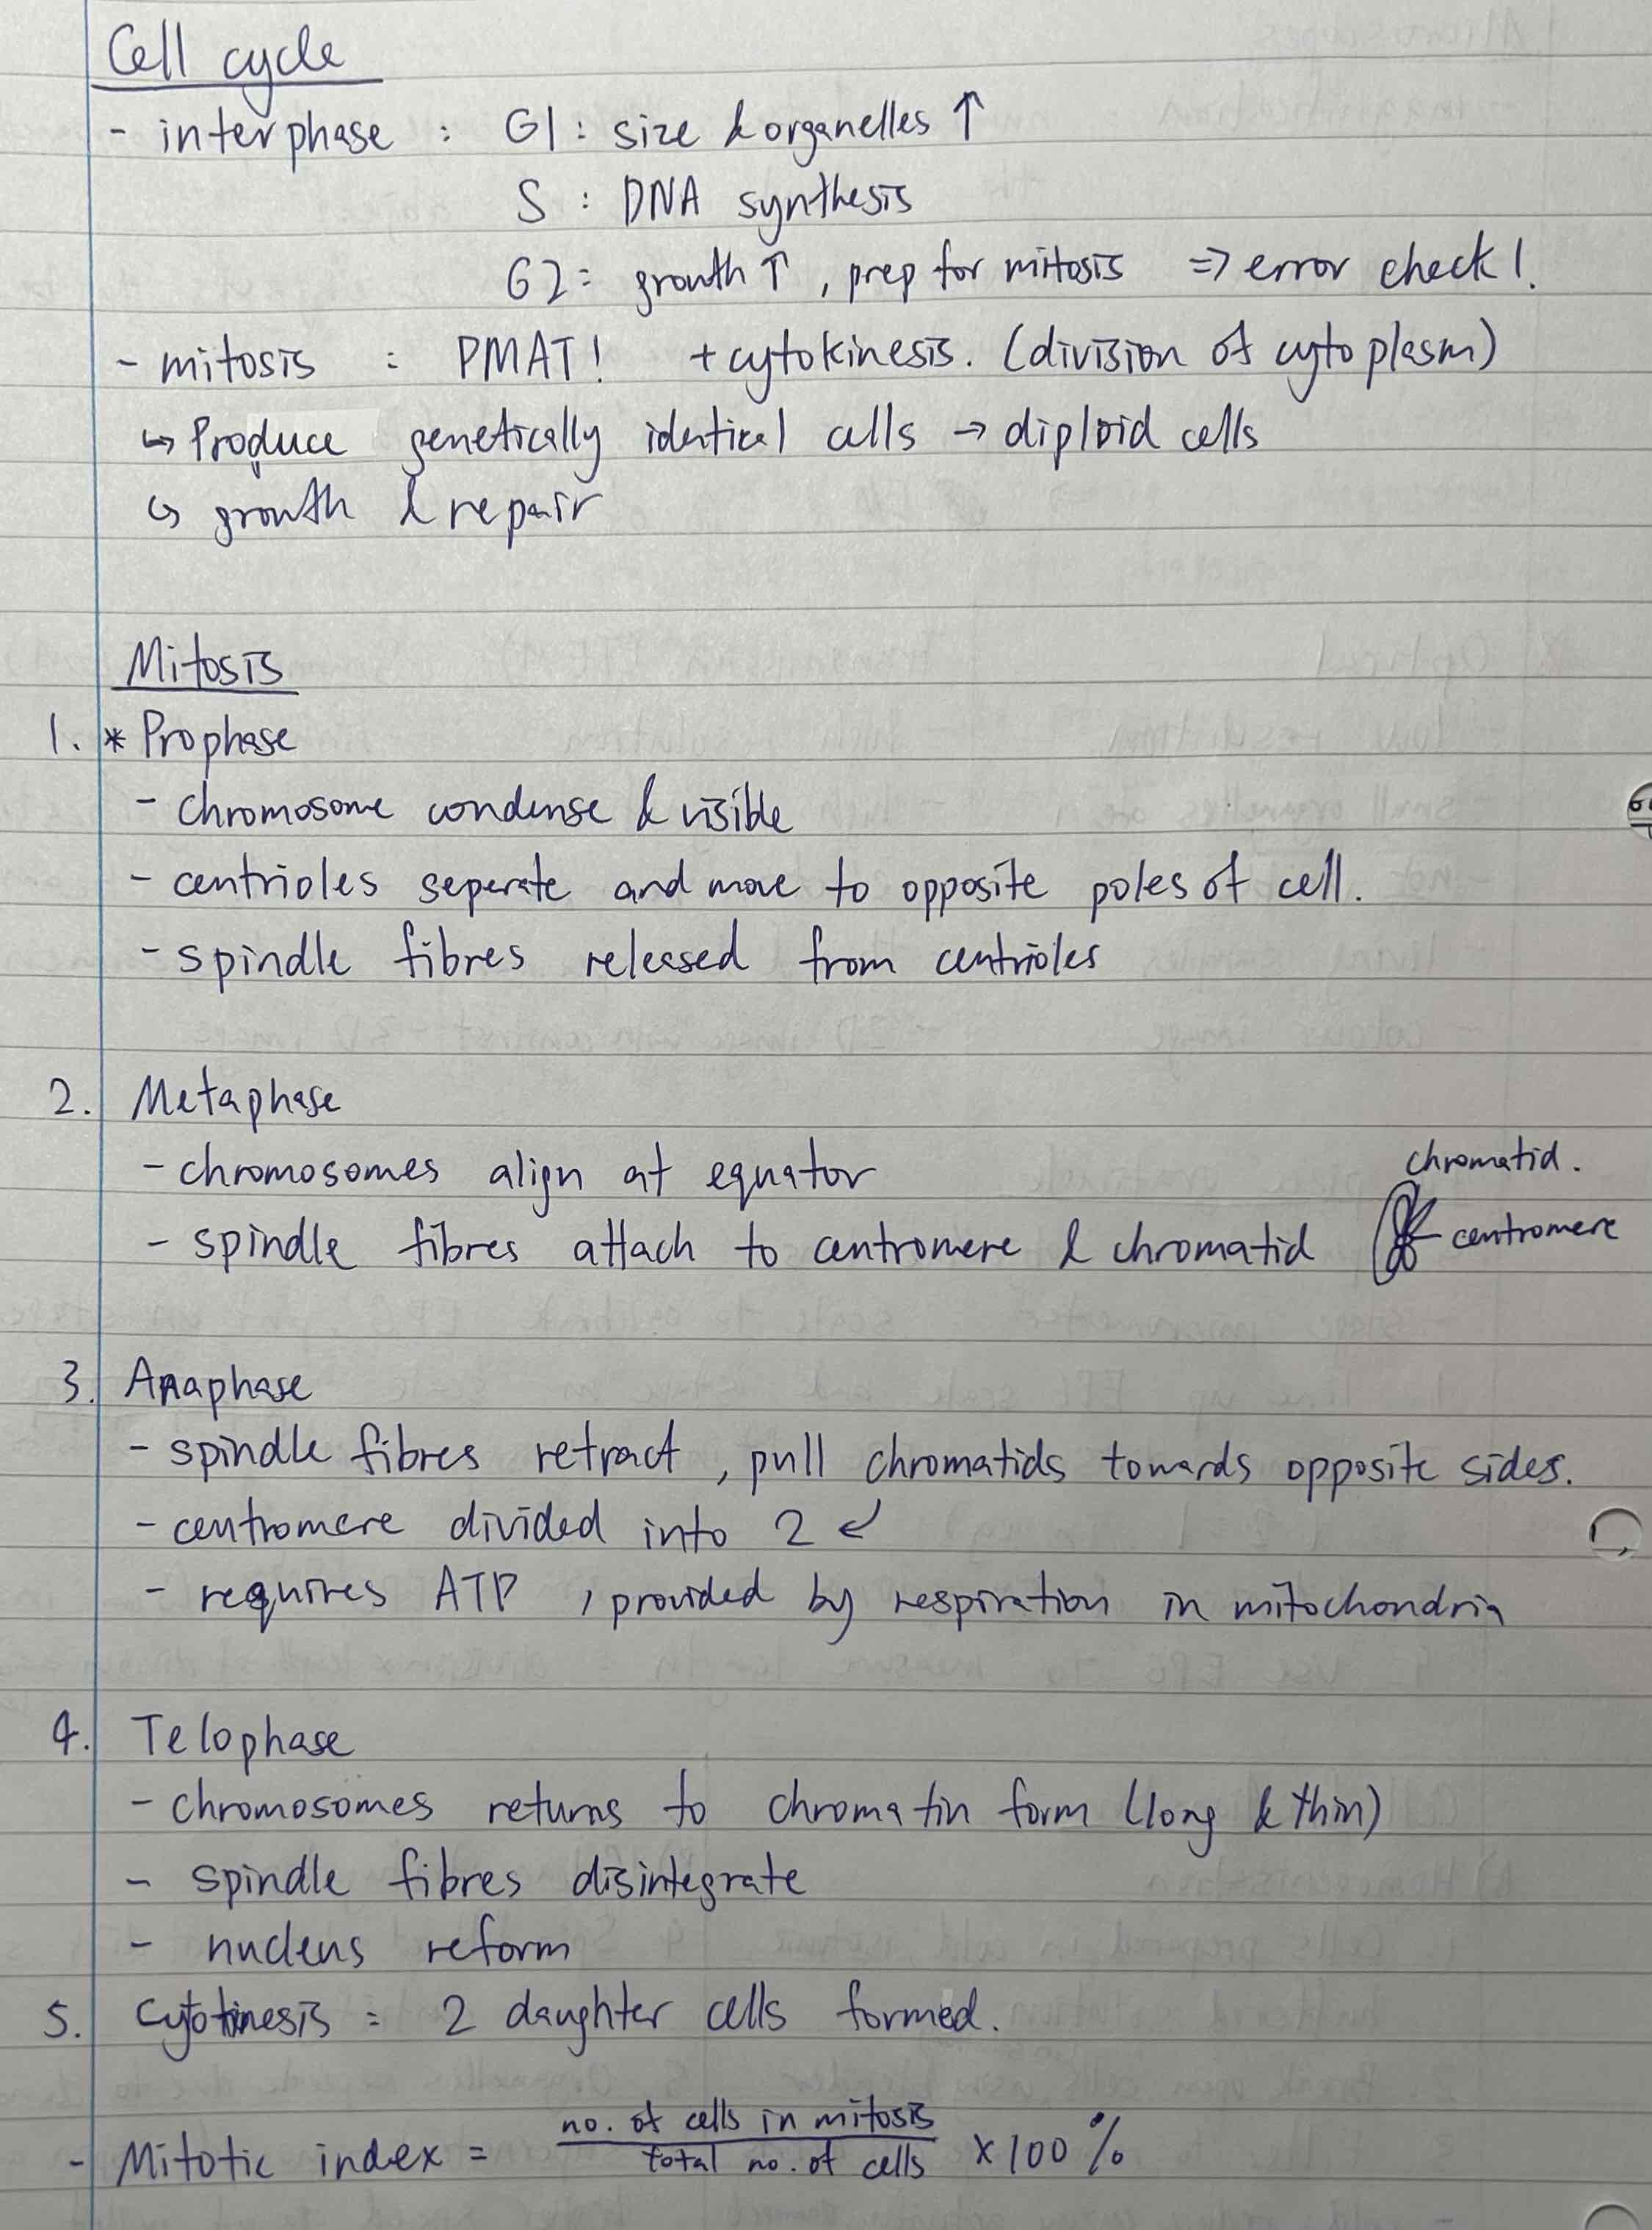 Cell cycle
- interphase : G1 : size & organelles ↑
S : DNA synthesis
G2 = growth ↑ , prep for mitosis => error check !
- mitosis : PMAT! + cytokinesis. (division of cytoplasm)
↳ Produce genetically identical cells → diploid cells
↳ growth & repair
Mitosis
1. * Prophase
- chromosome condense & visible
- centrioles seperate and move to opposite poles of cell.
- spindle fibres released from centrioles
2. Metaphase
- chromosomes align at equator
chromatid.
- spindle fibres attach to centromere & chromatid centromere
3. Anaphase
- spindle fibres retract , pull chromatids towards opposite sides.
- centromere divided into 2 ↙
- requires ATP , provided by respiration in mitochondria
4. Telophase
- chromosomes returns to chromatin form (long & thin)
- spindle fibres disintegrate
- nucleus reform
5. Cytokinesis = 2 daughter cells formed.
no. of cells in mitosis
- Mitotic index = x 100 %
total no. of cells